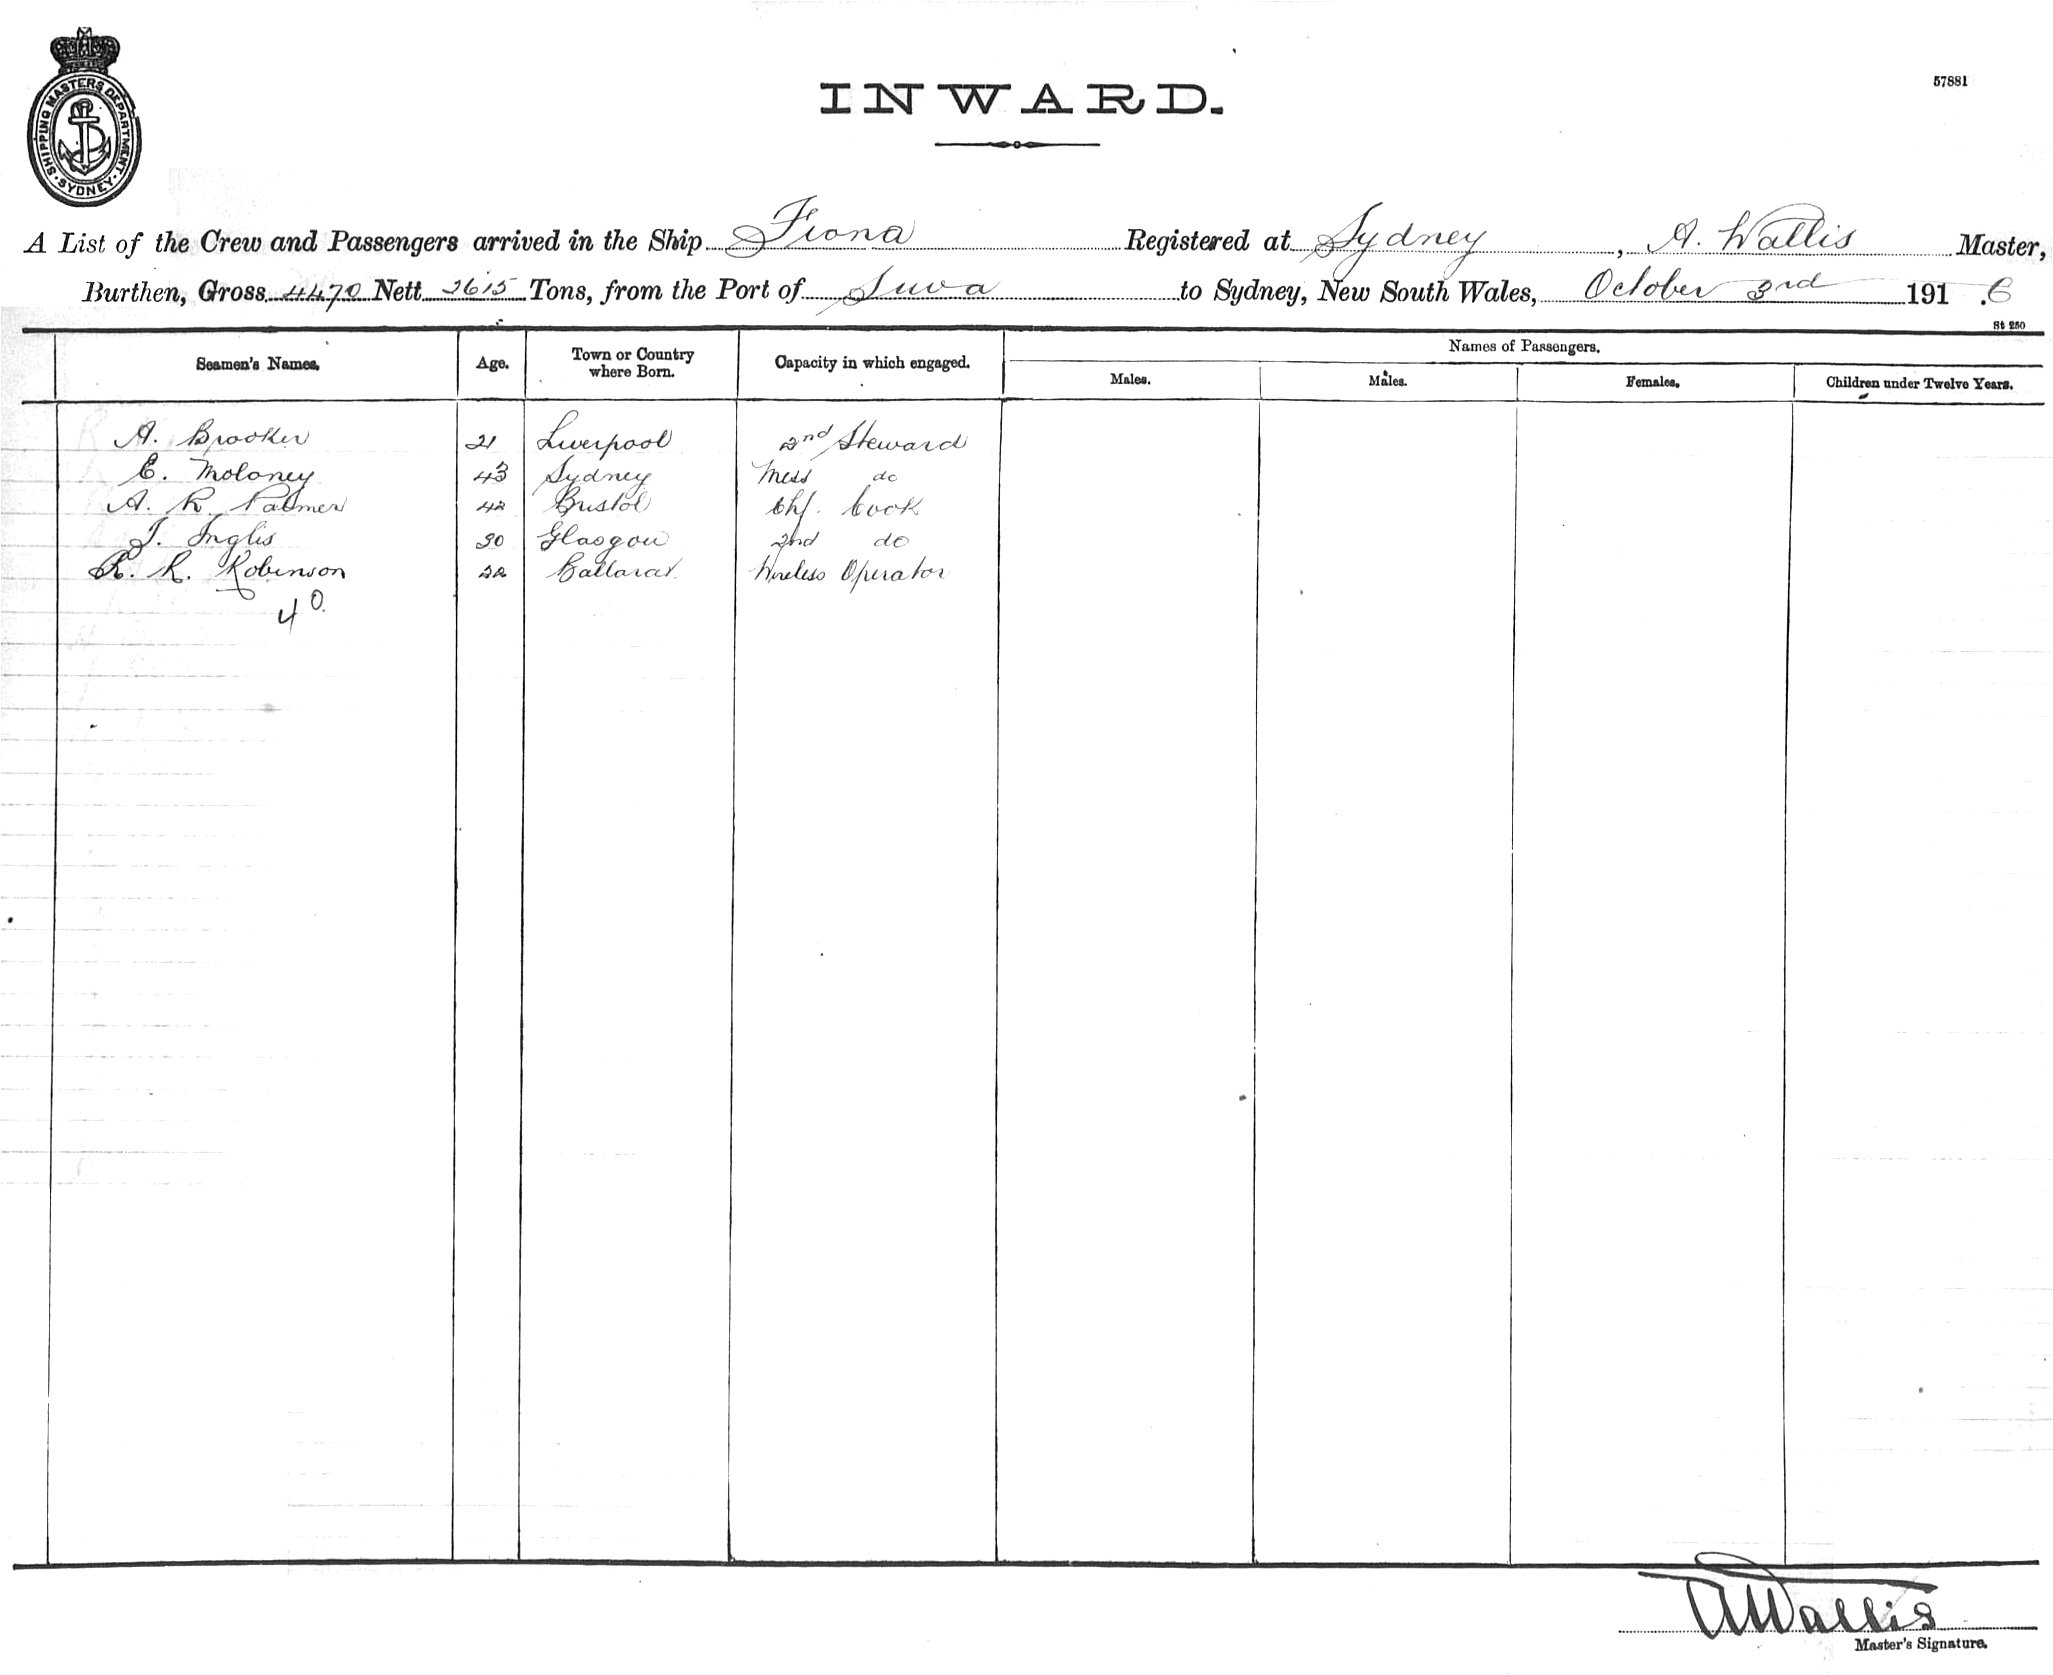 SHIPPING MASTERS DEPARTMENT · SYDNEY ·
57881
INWARD.
A List of the Crew and Passengers arrived in the Ship Fiona Registered at Sydney, A. Wallis Master,
Burthen, Gross 4470 Nett 2615 Tons, from the Port of Suva to Sydney, New South Wales, October 3rd 191.6
St 250
Names of Passengers.
Seamen's Names. Age. Town or Country where Born. Capacity in which engaged. Males. Males. Females. Children under Twelve Years.
A. Brooker 21 Liverpool 2nd Steward
E. Moloney 43 Sydney Mess do
A. R. Palmer 42 Bristol Chf. Cook
J. Inglis 30 Glasgow 2nd do
R. R. Robinson 22 Ballarat. Wireless Operator
40.
AWallis
Master's Signature.